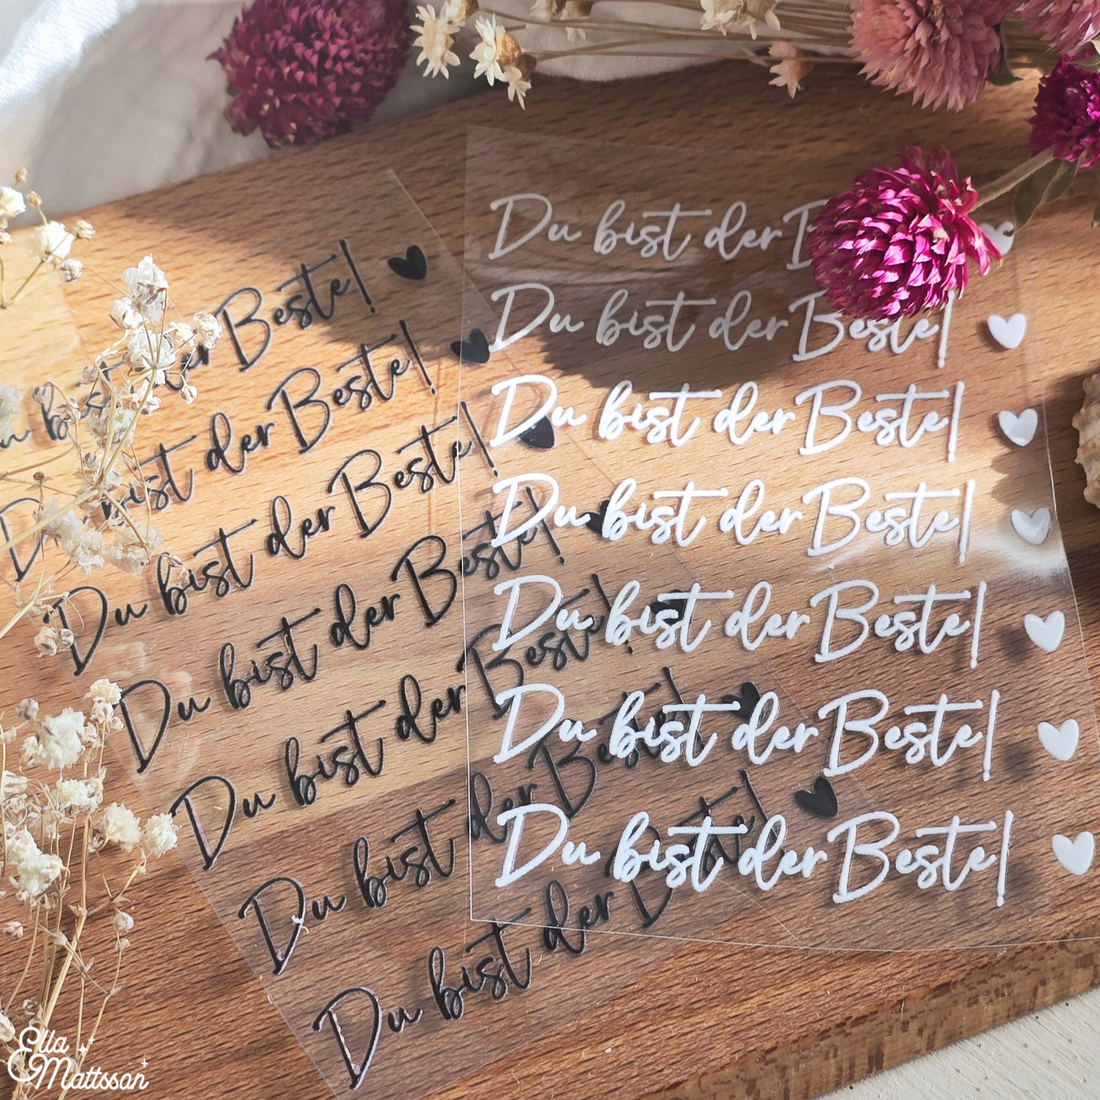 Beste!
bist der Beste!
Du bist der Beste!
Du bist der Beste!
Du bist der Beste!
Du bist der Beste!
Du bist der Beste!
Du bist der
Du bist der Beste!
Du bist der Beste!
Du bist der Beste!
Du bist der Beste!
Du bist der Beste!
Du bist der Beste!
Ella
Mattsson